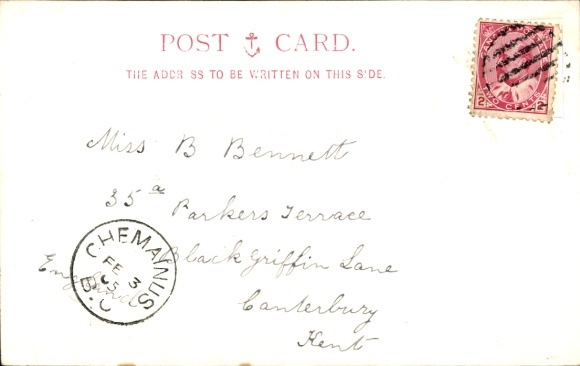 POST CARD.
THE ADDR SS TO BE WRITTEN ON THIS SIDE.
TWO CENTS
2 2
Miss B Bennett
35 a Parkers Terrace
Black Griffin Lane
Canterbury
Kent
England
CHEMAINUS
FE 3
05
B.C